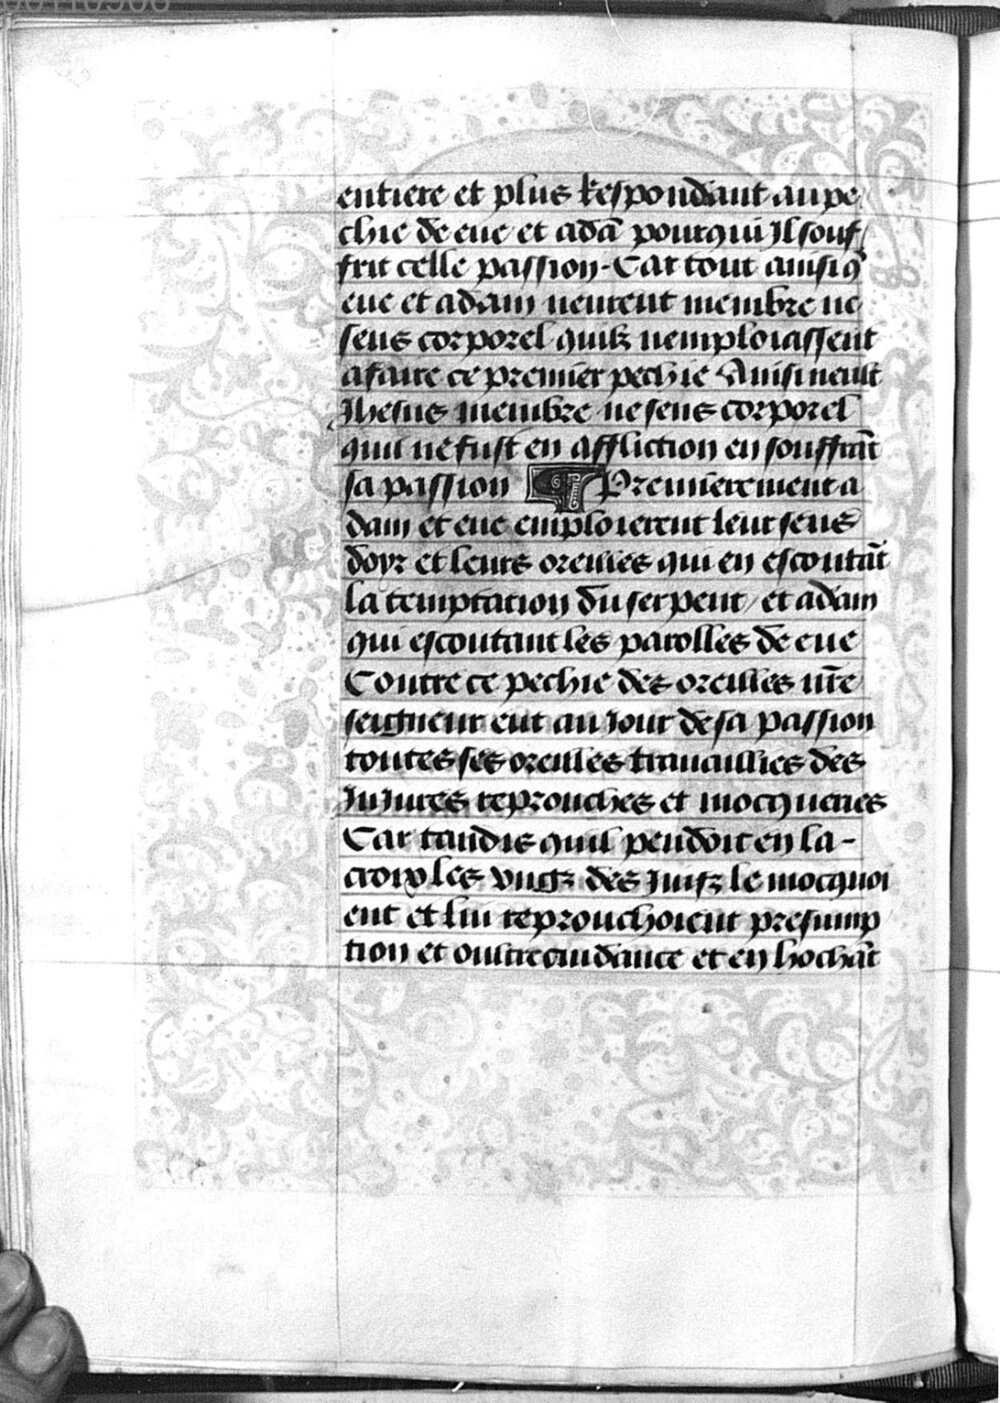 entiere et plus Respondant au pe
chie de eue et adã pourqui Il souf
frit celle passion. Car tout ainsi q̃
eue et adam neurent membre ne
sens corporel quilz nemploiassent
a faire ce premier pechie Ainsi neust
Ihesus membre ne sens corporel
quil ne fust en affliction en souffrãt
sa passion Premierement a
dam et eue emploierent leur sens
doyr et leurs oreilles qui en escoutãt
la temptation du serpent / et adam
qui escoutant les parolles de eue
Contre ce pechie des oreilles nr̃e
seigneur eut au Jour de sa passion
toutes ses oreilles trauaillies des
Iniures reprouches et mocqueries
Car tandis quil pendoit en la -
croix les vngz des Juifz le mocquoi
ent et lui reprouchoient presump
tion et oultrecuidance et en hochãt